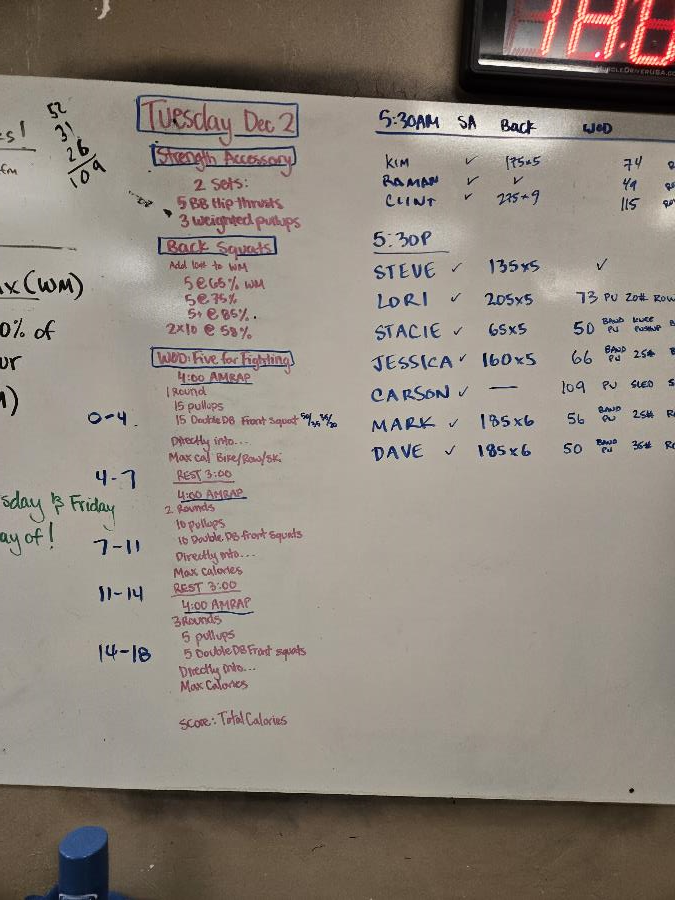 52
31
26
109
Tuesday Dec 2
Strength Accessory
2 Sets:
5 BB Hip thrusts
3 weighted pullups
Back Squats
Add lbs to WM
5@65% WM
5@75%
5+@85%.
2x10 @ 50%
WOD: Five for Fighting
4:00 AMRAP
1 Round
15 pullups
15 Double DB Front Squat 50/35 35/20
Directly into...
Max cal Bike/Row/Ski
REST 3:00
4:00 AMRAP
2 Rounds
10 pullups
10 Double DB front squats
Directly into...
Max calories
REST 3:00
4:00 AMRAP
3 Rounds
5 pullups
5 Double DB Front squats
Directly into...
Max Calories
Score: Total Calories
0-4
4-7
7-11
11-14
14-18
(WM)
0% of
sday & Friday
ay of!
5:30AM SA Back WOD
KIM ✓ 175x5 74
RAMAN ✓ ✓ 49
CLINT ✓ 275x9 115
5:30P
STEVE ✓ 135x5 ✓
LORI ✓ 205x5 73 PU 20# ROW
STACIE ✓ 65x5 50 BAND PU KNEE PUSHUP
JESSICA ✓ 160x5 66 BAND PU 25#
CARSON ✓ — 109 PU SLED
MARK ✓ 185x6 56 BAND PU 25#
DAVE ✓ 185x6 50 BAND PU 35#